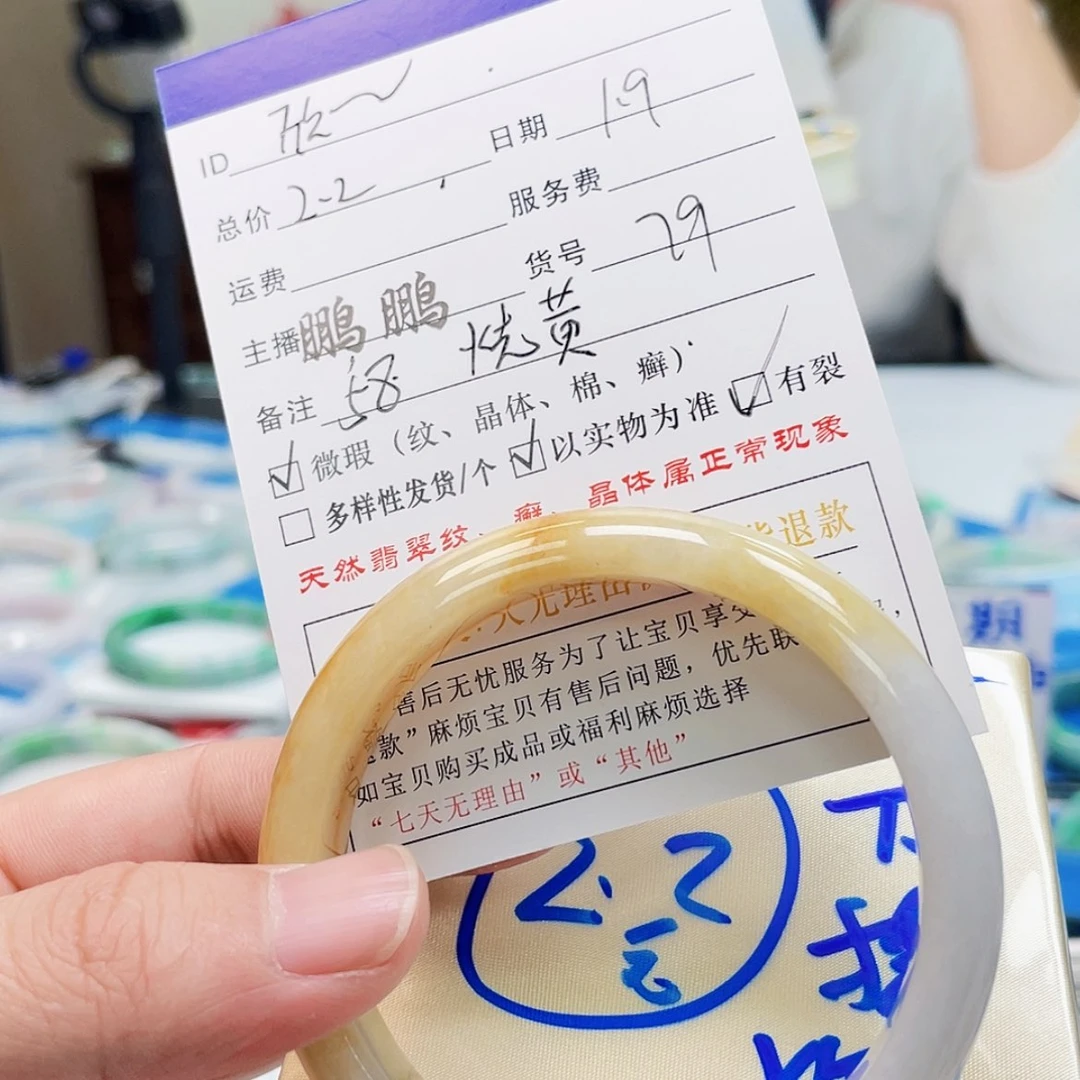 ID 欣
日期 1.9
总价 2.2
服务费
运费
货号 29
主播 鹏鹏
备注 58 烧黄
☑ 微瑕（纹、晶体、棉、癣）
☐ 多样性发货/个 ☑ 以实物为准 ☑ 有裂
天然翡翠纹、癣、晶体属正常现象
无理由 退款
售后无忧服务为了让宝贝享受
款”麻烦宝贝有售后问题，优先联
如宝贝购买成品或福利麻烦选择
“七天无理由”或“其他”
2.2